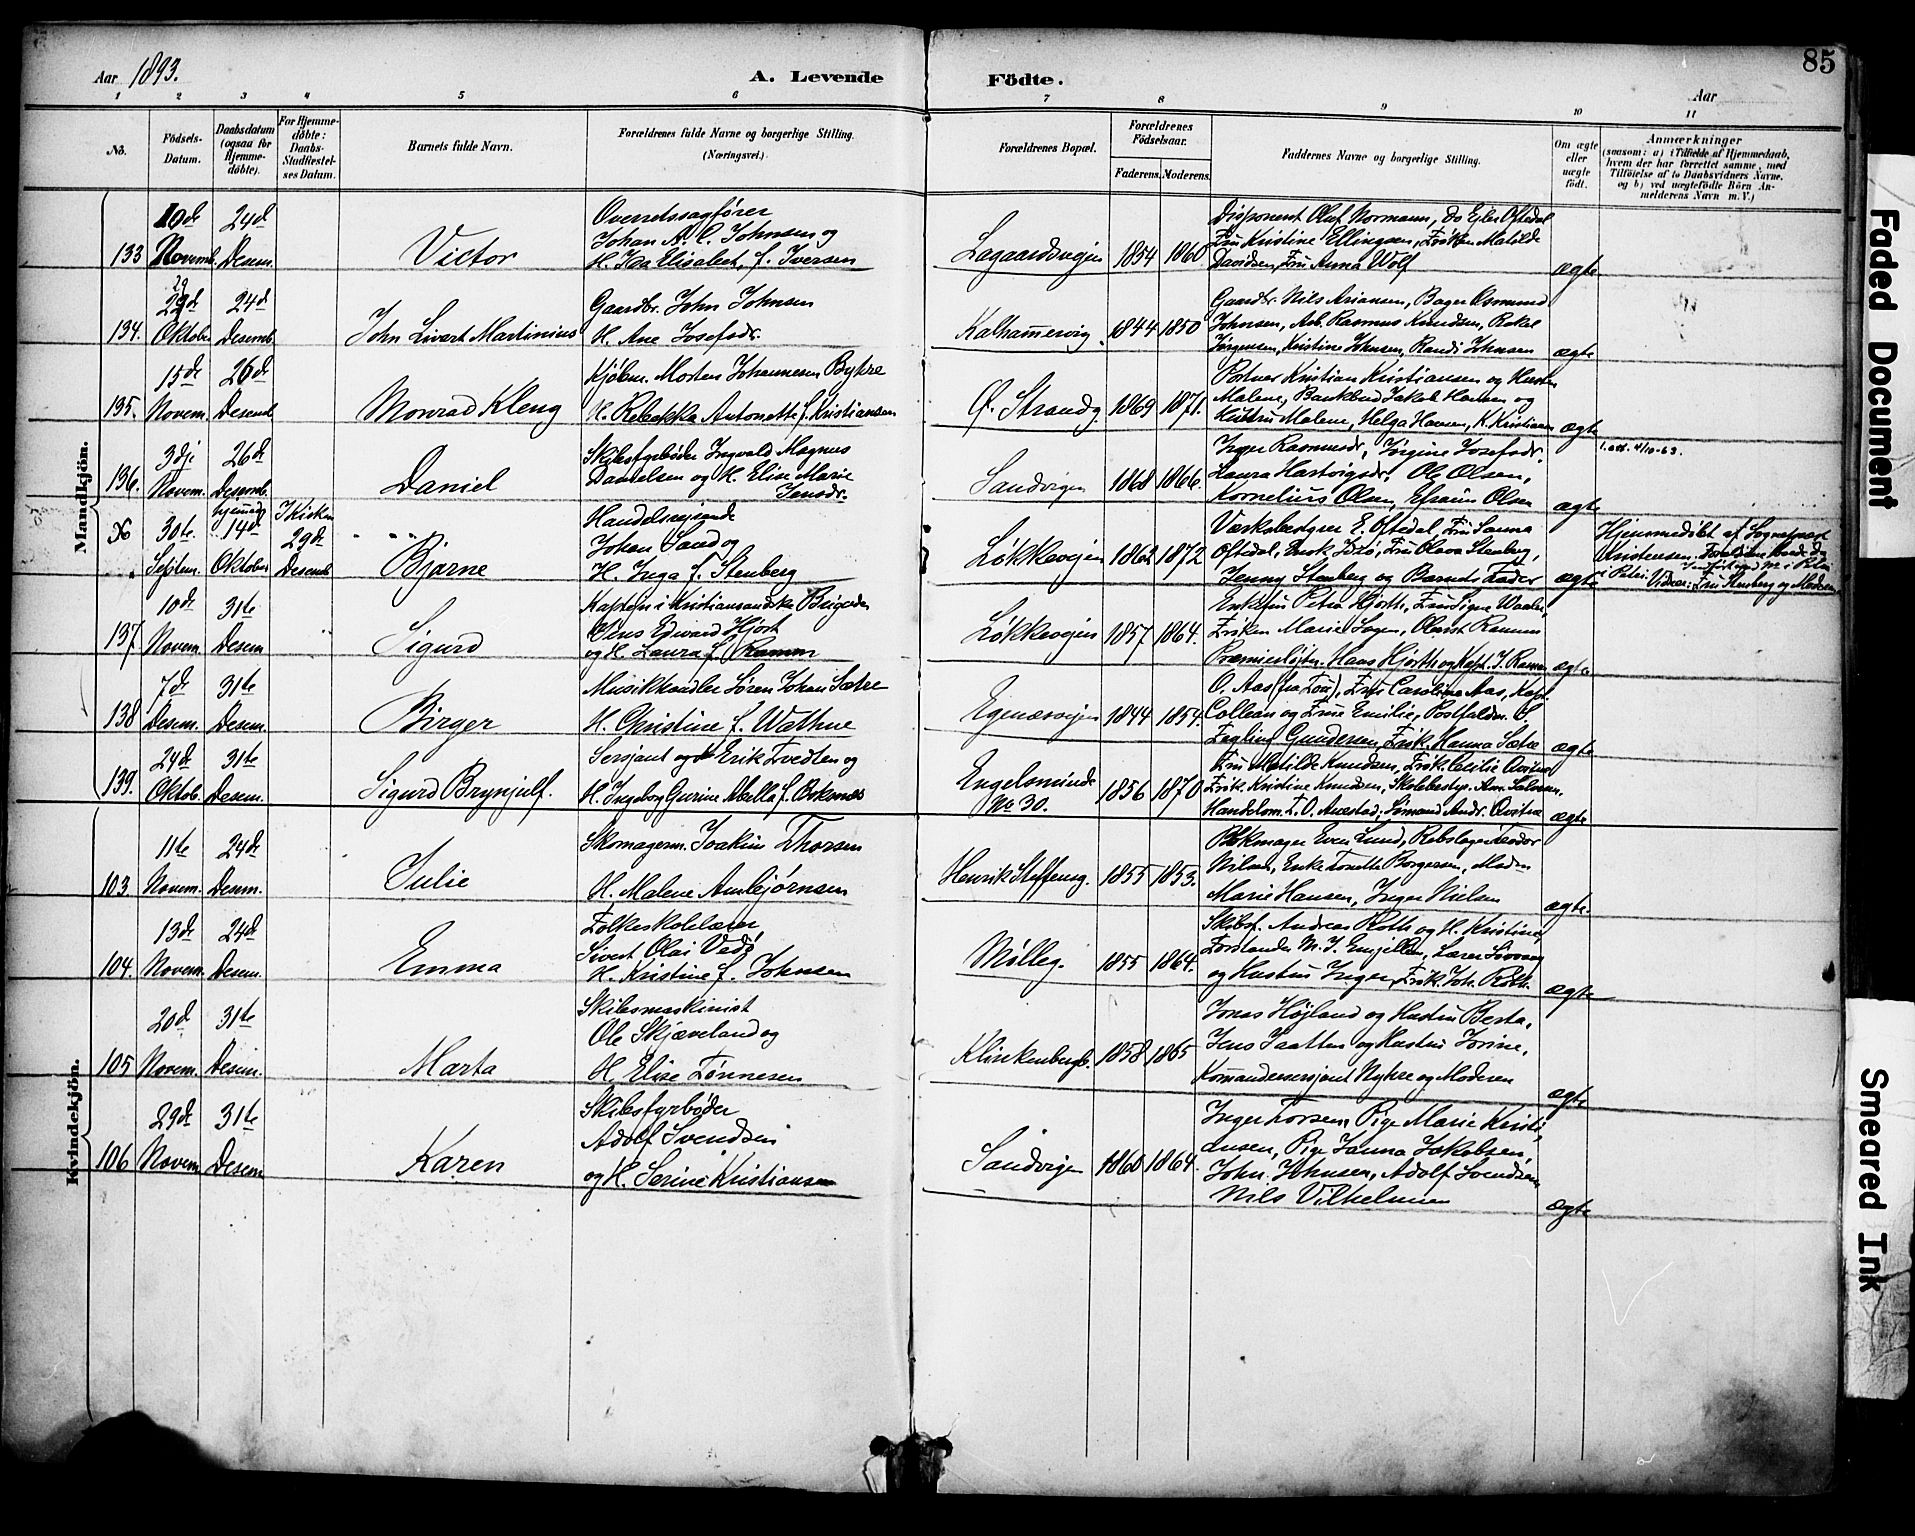 85
Aar 1893.
A. Levende Födte.
Aar
1 2 3 4 5 6 7 8 9 10 11
No.
Födsels-Datum.
Daabsdatum (ogsaa for Hjemme-døbte).
For Hjemme-døbte: Daabs-Stadfæstel-ses Datum.
Barnets fulde Navn.
Forældrenes fulde Navne og borgerlige Stilling. (Næringsvei.)
Forældrenes Bopæl.
Forældrenes Födselsaar.
Faderens. Moderens.
Faddernes Navne og borgerlige Stilling.
Om ægte eller uægte födt.
Anmærkninger
(saasom: a) i Tilfælde af Hjemmedaab, hvem der har forrettet samme, med Tilföielse af to Daabsvidners Navne, og b) ved uægtefödte Börn Anmelderens Navn m. V.)
Mandkjön.
133 10de Novemb. 24de Desem.
Victor
Overretssagfører
Johan A. C. Johnsen og
H. Ida Elisabet, f. Iversen
Lagaardsvejen 1854 1860
Disponent Oluf Normann, do Ejler Oftedal
Fru Kristine Ellingsen, Frøken Matilde
Davidsen, Fru Anna Wolf
ægte
134. 29de Oktober 24de Desemb.
John Sivert Martinius
Gaardbr. John Johnsen
H. Ane Josefsdr.
Kalhammervig. 1844 1850
Gaardbr. Nils Ariansen, Bager Osmund
Johnsen, Arb. Rasmus Knudsen, Bokel
Jørgensen, Kristine Johnsen, Randi Johnsen
ægte
135. 15de Novem. 26de Desemb.
Monrad Kleng
Kjøbm. Morten Johannesen Bykre
H. Rebekka Antonette f. Kristiansen
Ø. Strandg. 1869 1871.
Portner Kristian Kristiansen og Hustru
Malene, Bankbud Jakob Hansen og
Hustru Malene, Helga Hansen, K. Kristiansen
ægte
136. 3dje Novem. 26de Desemb.
Daniel
Skibsfyrbøder Ingvald Magnus
Danielsen og H. Elise Marie
Jensdr.
Sandvigen 1868 1866.
Inger Rasmusdr, Jørgine Josefsdr.
Laura Hartvigsdr. Ole Olsen,
Kornelius Olsen, Efraim Olsen
ægte
1. att. 4/10-63.
30te Septem. hjemme 14de Oktober I Kirken 29de Desemb.
Bjarne
Handelsrejsende
Johan Sand og
H. Inga f. Stenberg
Løkkevejen 1862 1872
Værksbestyrer E. Oftedal, Fru Sanna
Oftedal, Fru Olava Stenberg,
Jenny Stenberg og Barnets Fader
ægte
Hjemmedøbt af Sognepræst
Kristensen.
i Petri. Vidner: Fru Stenberg og Moderen
137 10de Novem. 31te Desem
Sigurd
Kaptejn i Kristiansandske Brigade
Jens Edvard Hjort
og H. Laura f. Ramm
Løkkevejen 1857. 1864.
Enkefru Petra Hjorth, Fru Signe Waaler,
Frøken Marie Sagen, Oberst Ramm
Premierløjtn. Hans Hjorth og Kapt. J. Ramm
ægte
138 7de Desem. 31te Desem.
Birger
Musikhandler Søren Johan Sætre
H. Christine f. Wathne
Egenæsvejen 1844 1854.
O. Aas (fra Fou), Fru Caroline Aas, Kapt.
Collean og Frue Emilie, Postfuldm. C.
Gundersen, Frøk. Hanna Sætre
ægte
139. 24de Oktob. 31te Desem.
Sigurd Brynjulf.
Sersjant Erik Tvedten og
H. Ingeborg Gurine Abella f. Orknæs
Engelsminde No 30. 1856 1870
Fru Matilde Knudsen, Frøk. Cecilie Qvitra
Frøk. Kristine Knudsen, Skolebestyr. Am. Salvesen.
Handelsm. T. O. Auestad, Sømand Andr. Qvitra
ægte
Kvindekjön.
103 11te Novem. 24de Desem.
Julie
Skomagerm. Joakim Thorsen
H. Malene Ambjørnsen
Henrik Steffensg. 1855 1853.
Blokmager Even Lund, Rebslager Teodor
Nilsen, Enke Tonette Borgersen, Madm
Marie Hansen, Inger Nielsen
ægte.
104. 13de Novem. 24de Desem.
Emma
Folkeskolelærer,
Sivert Olai Vadø
H. Kristine f. Johnsen
Mølleg. 1855 1864.
Skibsf. Andreas Roth og H. Kristine,
Forstander M. J. Emjellen, Lærer
og Hustru Inger, Frøk. Joh. Roth.
ægte
105 20de Novem. 31te Desem.
Marta
Skibsmaskinist
Ole Skjæveland og
H. Elise Tønnesen
Klinkenbergb. 1858 1865
Jonas Højland og Hustru Berta,
Jens Taatten og Hustru Jorine,
Komandersersjant Nykre og Moderen
ægte
106 29de Novem. 31te Desem
Karen
Skibsfyrbøder
Adolf Svendsen
og H. Serine Kristiansen
Sandvigen 1860 1864.
Inger Torsen, Pige Marie Kristi-
ansen, Pige Janna Jakobsen,
John Johnsen, Adolf Svendsen,
Nils Vilhelmsen
ægte
Faded Document
Smeared Ink